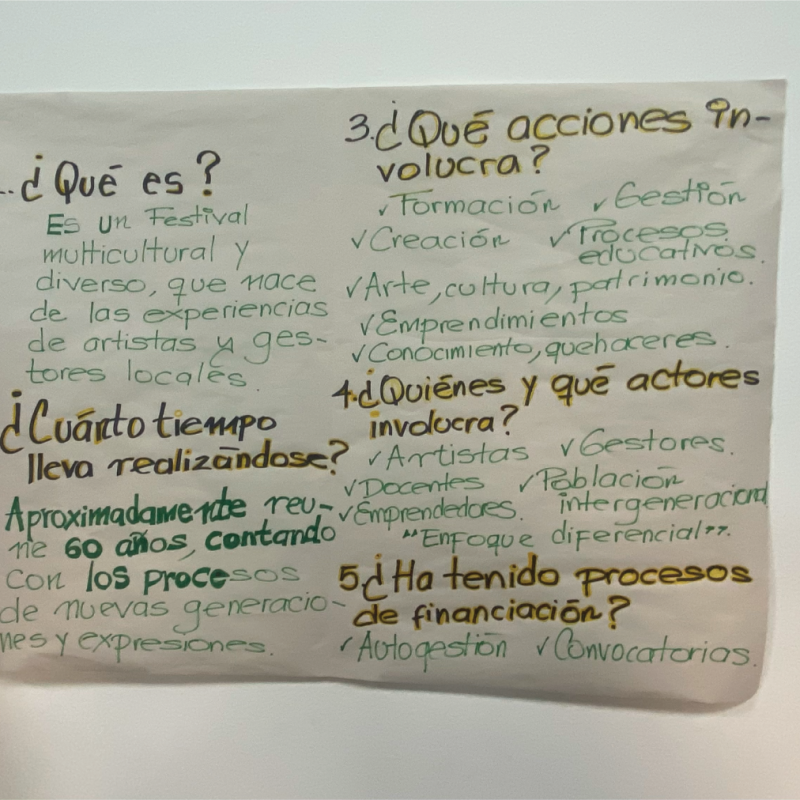 ..¿Qué es?
Es un Festival
multicultural y
diverso, que nace
de las experiencias
de artistas y ges-
tores locales.
¿Cuánto tiempo
lleva realizándose?
Aproximadamente reu-
ne 60 años, contando
con los procesos
de nuevas generacio-
nes y expresiones.
3.¿Qué acciones in-
volucra?
✓Formación ✓Gestión
✓Creación ✓Procesos
educativos.
✓Arte, cultura, patrimonio.
✓Emprendimientos
✓Conocimiento, quehaceres.
4.¿Quiénes y qué actores
involucra?
✓Artistas ✓Gestores.
✓Docentes ✓Población
✓Emprendedores. intergeneracional
"Enfoque diferencial".
5.¿Ha tenido procesos
de financiación?
✓Autogestión ✓Convocatorias.